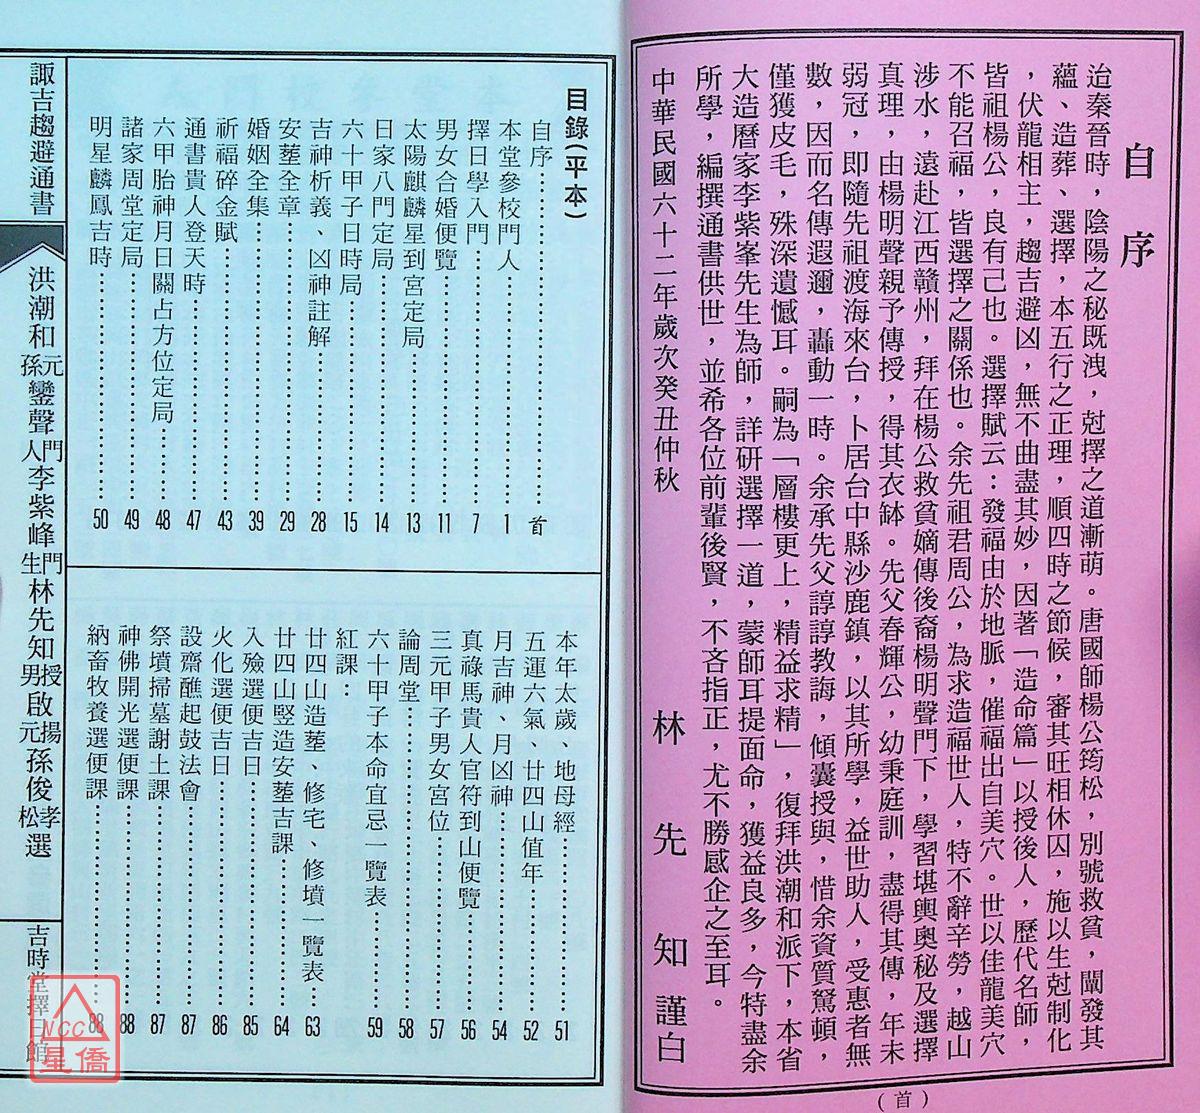 自序
迨秦晉時，陰陽之秘既洩，尅擇之道漸萌。唐國師楊公筠松，別號救貧，闡發其
蘊、造葬、選擇，本五行之正理，順四時之節候，審其旺相休囚，施以生尅制化
，伏龍相主，趨吉避凶，無不曲盡其妙，因著「造命篇」以授後人，歷代名師，
皆祖楊公，良有己也。選擇賦云：發福由於地脈，催福出自美穴。世以佳龍美穴
不能召福，皆選擇之關係也。余先祖君周公，為求造福世人，特不辭辛勞，越山
涉水，遠赴江西贛州，拜在楊公救貧嫡傳後裔楊明聲門下，學習堪輿奧秘及選擇
真理，由楊明聲親予傳授，得其衣缽。先父春輝公，幼秉庭訓，盡得其傳，年未
弱冠，即隨先祖渡海來台，卜居台中縣沙鹿鎮，以其所學，益世助人，受惠者無
數，因而名傳遐邇，轟動一時。余承先父諄諄教誨，傾囊授與，惜余資質駑頓，
僅獲皮毛，殊深遺憾耳。嗣為「層樓更上，精益求精」，復拜洪潮和派下，本省
大造曆家李紫峯先生為師，詳研選擇一道，蒙師耳提面命，獲益良多，今特盡余
所學，編撰通書供世，並希各位前輩後賢，不吝指正，尤不勝感企之至耳。
中華民國六十二年歲次癸丑仲秋　林先知謹白
（首）
目錄（平本）
自序……首
本堂參校門人……1
擇日學入門……7
男女合婚便覽……11
太陽麒麟星到宮定局……13
日家八門定局……14
六十甲子日時局……15
吉神析義、凶神註解……28
安塟全章……29
婚姻全集……39
祈福碎金賦……43
通書貴人登天時……47
六甲胎神月日關占方位定局……48
諸家周堂定局……49
明星麟鳳吉時……50
本年太歲、地母經……51
五運六氣、廿四山值年……52
月吉神、月凶神……54
真祿馬貴人官符到山便覽……56
三元甲子男女宮位……57
論周堂……58
六十甲子本命宜忌一覽表……59
紅課：
廿四山造塟、修宅、修墳一覽表……63
廿四山豎造安塟吉課……64
入殮選便吉日……85
火化選便吉日……86
設齋醮起鼓法會……87
祭墳掃墓謝土課……87
神佛開光選便課……88
納畜牧養選便課……88
諏吉趨避通書
洪潮和元孫鑾聲門人李紫峰門生林先知授男啟揚元孫俊孝松選
吉時堂擇日館
NCC
星僑